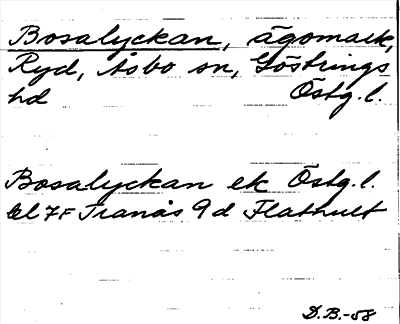 Bosalyckan, ägomark,
Ryd, Åsbo sn, Göstrings
hd Östg. l.
Bosalyckan ek Östg. l.
bl 7F Tranås 9d Flathult
D.B.-58